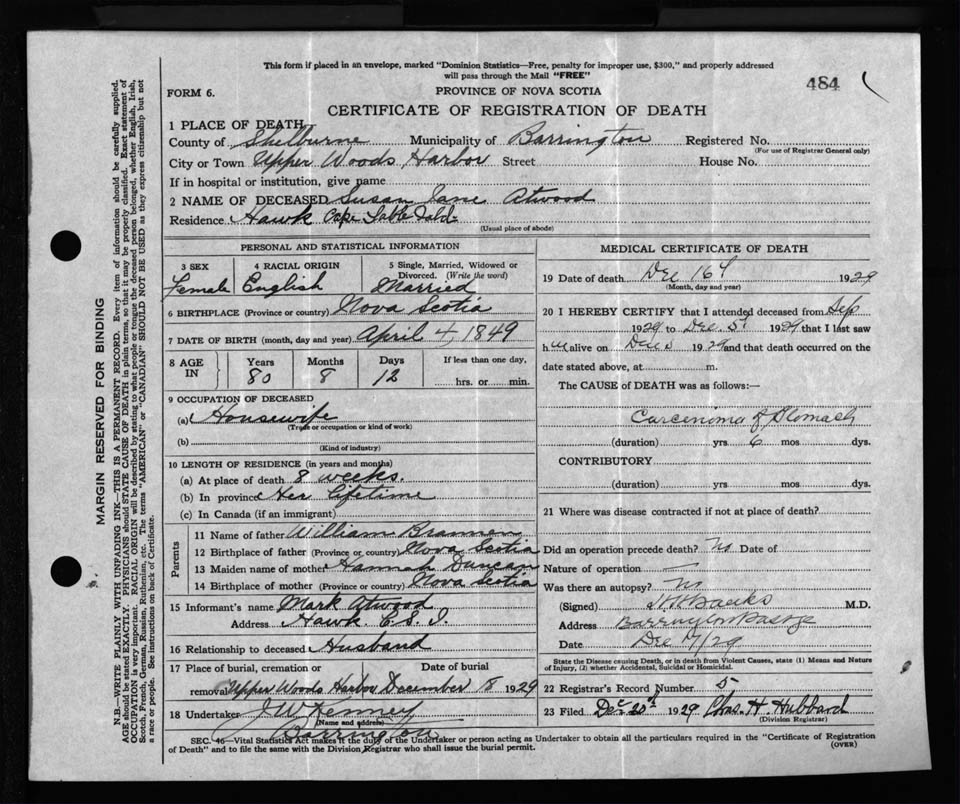 This form if placed in an envelope, marked "Dominion Statistics—Free, penalty for improper use, $300," and properly addressed
will pass through the Mail "FREE"
484
FORM 6.
PROVINCE OF NOVA SCOTIA
CERTIFICATE OF REGISTRATION OF DEATH
1 PLACE OF DEATH
County of Shelburne Municipality of Barrington Registered No.
(For use of Registrar General only)
City or Town Upper Woods Harbor Street House No.
If in hospital or institution, give name
2 NAME OF DECEASED Susan Jane Atwood
Residence Hawk Cape Sable Isld.
(Usual place of abode)
PERSONAL AND STATISTICAL INFORMATION
3 SEX 4 RACIAL ORIGIN 5 Single, Married, Widowed or Divorced. (Write the word)
Female English Married
6 BIRTHPLACE (Province or country) Nova Scotia
7 DATE OF BIRTH (month, day and year) April 4, 1849
8 AGE IN Years Months Days If less than one day,
80 8 12 hrs. or min.
9 OCCUPATION OF DECEASED
(a) Housewife
(Trade or occupation or kind of work)
(b)
(Kind of industry)
10 LENGTH OF RESIDENCE (in years and months)
(a) At place of death 8 weeks.
(b) In province Her Lifetime
(c) In Canada (if an immigrant)
Parents
11 Name of father William Brannen
12 Birthplace of father (Province or country) Nova Scotia
13 Maiden name of mother Hannah Duncan
14 Birthplace of mother (Province or country) Nova Scotia
15 Informant's name Mark Atwood
Address Hawk. C. S. I.
16 Relationship to deceased Husband
17 Place of burial, cremation or Date of burial
removal Upper Woods Harbor December 18 1929
18 Undertaker J W Kenney
(Name and address)
Barrington
MEDICAL CERTIFICATE OF DEATH
19 Date of death Dec 16 1929
(Month, day and year)
20 I HEREBY CERTIFY that I attended deceased from Sep
1929 to Dec. 5 1929 that I last saw
h alive on Dec 5 1929 and that death occurred on the
date stated above, at m.
The CAUSE of DEATH was as follows:—
Carcinoma of Stomach
(duration) yrs 6 mos dys.
CONTRIBUTORY
(duration) yrs mos dys.
21 Where was disease contracted if not at place of death?
Did an operation precede death? No Date of
Nature of operation —
Was there an autopsy? No
(Signed) Banks M.D.
Address Barrington Passage
Date Dec 17/29
State the Disease causing Death, or in death from Violent Causes, state (1) Means and Nature
of Injury, (2) whether Accidental, Suicidal or Homicidal.
22 Registrar's Record Number 5
23 Filed Dec 20th 1929 Chas. H Hubbard
(Division Registrar)
SEC. 46—Vital Statistics Act makes it the duty of the Undertaker or person acting as Undertaker to obtain all the particulars required in the "Certificate of Registration
of Death" and to file the same with the Division Registrar who shall issue the burial permit.
(OVER)
MARGIN RESERVED FOR BINDING
N.B.—WRITE PLAINLY WITH UNFADING INK—THIS IS A PERMANENT RECORD. Every item of information should be carefully supplied.
AGE should be stated EXACTLY. PHYSICIANS should STATE CAUSE OF DEATH in plain terms, so that it may be properly classified. Exact statement of
OCCUPATION is very important. RACIAL ORIGIN will be described by stating to what people or tongue the deceased person belonged, whether English, Irish,
Scotch, French, German, Russian, Ruthenian, etc. The terms "AMERICAN" or "CANADIAN" SHOULD NOT BE USED as they express citizenship but not
a race or people. See instructions on back of Certificate.